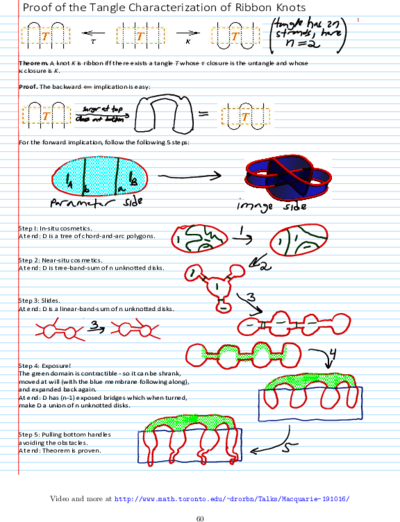 Proof of the Tangle Characterization of Ribbon Knots
1
T
τ
T
κ
T
(tangle has 2n
strands, here
n=2)
Theorem. A knot K is ribbon iff there exists a tangle T whose τ closure is the untangle and whose
κ closure is K.
Proof. The backward ⇐ implication is easy:
T
=
T
For the forward implication, follow the following 5 steps:
parameter side
image side
Step 1: In-situ cosmetics.
At end: D is a tree of chord-and-arc polygons.
1
Step 2: Near-situ cosmetics.
At end: D is tree-band-sum of n unknotted disks.
2
Step 3: Slides.
At end: D is a linear-band-sum of n unknotted disks.
3
3
Step 4: Exposure!
The green domain is contractible - so it can be shrank,
moved at will (with the blue membrane following along),
and expanded back again.
At end: D has (n-1) exposed bridges which when turned,
make D a union of n unknotted disks.
4
Step 5: Pulling bottom handles
avoiding the obstacles.
At end: Theorem is proven.
5
Video and more at http://www.math.toronto.edu/~drorbn/Talks/Macquarie-191016/
60